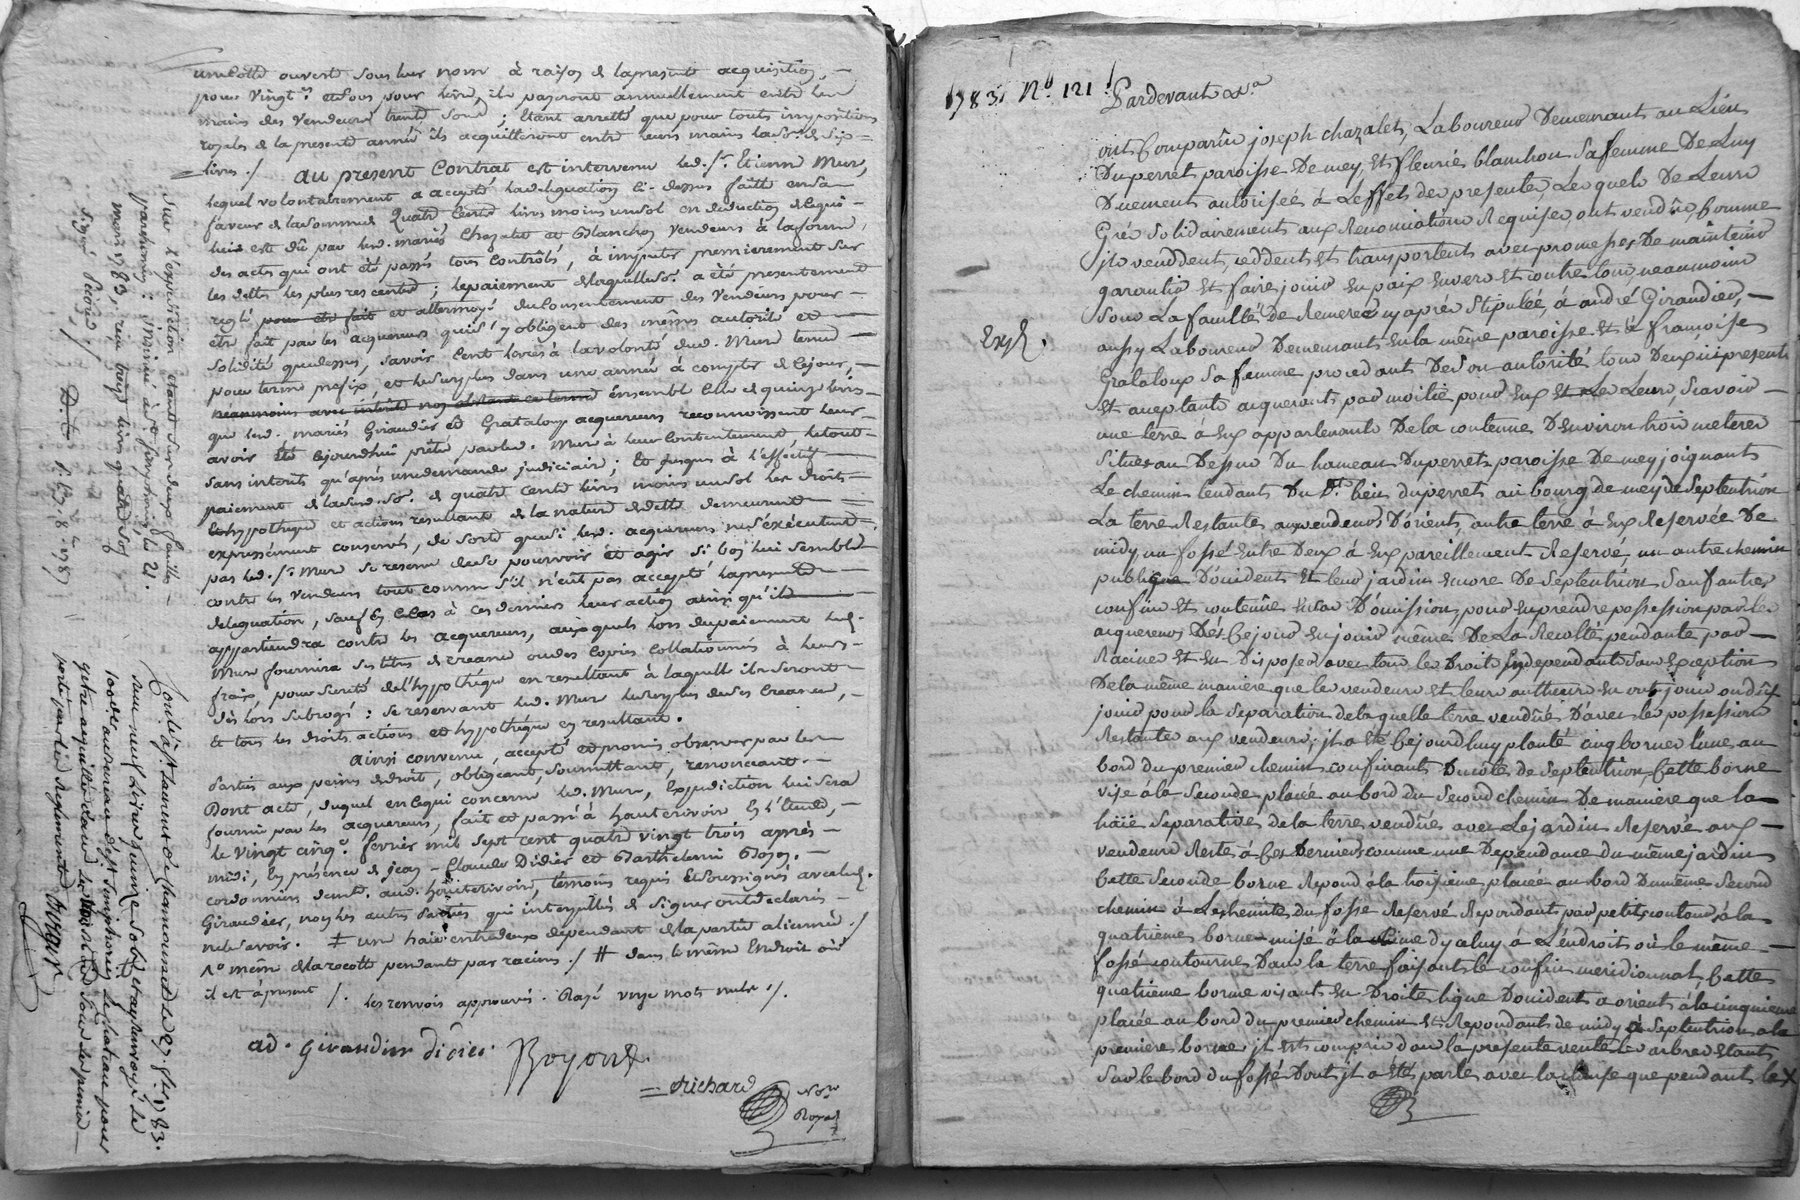 une cotte ouverte sous leur nom à raison de la presente acquisition,
pour vingt.e et sous pour livre, ils payeront annuellement entre les
mains des vendeurs trente sous ; étant arretté que pour toute imposition
royales de la presente année ils acquitteront entre leurs mains la so.e de six
livres ./ au present Contrat est intervenu led. s.r Etienne Mur,
lequel volontairement a accepté la deleguation ci-dessus faitte en sa
faveur de la somme de quatre cents livres moins un sol en deduction de ce qui
lui est dû par led. mariés Chazalet et Blanchon vendeurs à la forme
des actes qui ont été passés tous contrôlés, à imputer premierement sur
les dettes les plus rescentes ; le paiement de laquelle so.e a été presentement
reglé pour être fait et attermoyé du consentement des vendeurs pour
être fait par les acquereurs qui s'y obligent des mêmes autorité et
solidité que dessus, savoir cent livres à la volonté dud. Mur
pour terme prefix et le surplus dans une année à compter de ce jour,
ensemble celle de quinze livres
que led. mariés Giraudier et Grataloup acquereurs reconnoissent leur
avoir été cejourd'hui prêtée par led. Mur à leur contentement, le tout
sans interets qu'après une demande judiciaire ; et jusques à l'effectif
paiement de lad. so.e de quatre cents livres moins un sol les droits
hypotheque et actions resultant de la nature de dette demeurent
expressément conservés, de sorte que si led. acquereurs ne s'exécutent
pas led. s.r Mur se reserve de se pourvoir et agir si bon lui semble
contre les vendeurs tout comme s'il n'eût pas accepté la presente
deleguation, sauf à ces derniers leur action ainsi qu'il
appartiendra contre les acquereurs, auxquels lors du paiement led.
Mur fournira ses titres de creance ou des copies collationnés à leurs
frais pour sureté de l'hypothéque en resultant à laquelle ils seront
dès lors subrogé : se reservant led. Mur le surplus de ses creances,
et tous les droits actions et hypothéque en resultant.
ainsi convenu, accepté et promis observer par les
parties aux peines de droit, obligeant, soumettant, renonceant.
Dont acte, duquel en ce qui concerne led. Mur, expedition lui sera
fournie par les acquereurs, fait et passé à hauterivoir en l'étude,
le vingt cinq.e fevrier mil sept cent quatre vingt trois après
midi, en présence de jean Claude Didier et Barthelemi Boyon,
cordonniers demt. aud. hauterivoir, témoins requis et soussignés avec led.
Giraudier, non les autres parties qui interpellés de signer ont declaré
ne le savoir. ‡ une haie entredeux dependant de la partie alienée ./
N.o même de la recolte pendante par racines ./ # dans le même endroit où
il est à present /. les renvois approuvés. Rayé onze mots nuls ./.
ad. Giraudier didier Boyon
Richard No.re Royal
Sur l'expedition étant sur deux feuilles
parchemin : insinué à s.t Symphorien, le 21.
mars 1783, reçu treize livres quatre sols
Signé Picoyne ./.
Contlé à S.t Laurent de chamousset le 27. f.er 1783.
reçu neuf livres quinze sols et ay renvoyé le
100e denier au bureau de s.t simphorien le chateau pour
y etre acquitté dans les trois mois sous les peines
portées par les reglements
1783. N.o 121 Pardevant &.a
Exp.
ont Comparûs joseph chazalet, Laboureur Demeurant au Lieu
Du perret paroisse De mey, Et fleurie blanchon Sa femme De Luy
Duement autorisée à L'effet des presentes, Lesquels De Leurs
Gré Solidairement aux Renonciations Requises, ont vendûs, Comme
jls venddent, ceddent Et transportent avec promesses De maintenir
garantir Et faire jouir En paix Envers Et contre tous neanmoins
Sous La faculté De Remeré cy après Stipulée, à andré Giraudier,
aussy Laboureur Demeurant En la même paroisse Et à françoise
Grataloup Sa femme procedant De son autorité tous Deux ici presents
Et acceptants acquereurs par moitié pour Eux Et Les Leurs, Scavoir
une terre à Eux appartenante De la contenue D'environ trois meterées
Située au Dessus Du hameau Du perret paroisse De mey joignant
Le chemin tendant Du D.t lieu du perret au bourg de mey de Septentrion
La terre Restante aux vendeurs D'orient, autre terre à Eux Reservée De
midy un fossé Entre Deux à Eux pareillement Reservé, un autre chemin
publique D'occident Et leur jardin Encore De Septentrion Sauf autres
confins Et contenûe Sans D'omission, pour En prendre possession par les
acquereurs Dès Cejour En jouir même De La Recolte pendante par
Racines Et En Disposer avec tous les Droits En dependants Sans Exception
De la même maniere que les vendeurs Et leurs autheurs En ont joui ou dûs
jouir pour la Separation de laquelle terre vendûe D'avec les possessions
Restantes aux vendeurs, jl a Eté Cejourd'huy planté cinq bornes l'une au
bord du premier chemin confinant Du côté de Septentrion, Cette borne
vise à la Seconde placée au bord du Second chemin De maniere que la
haïe Separative de la terre vendûe avec Le jardin Reservé aux
vendeurs Reste à Ces Derniers comme une Dependance du même jardin
Cette Seconde borne Repond à la troisieme placée au bord Du même Second
chemin à L'extremité du fossé Reservé Repondant par petits contours à la
quatrieme borne à L'endroit où le même
fossé contourne Dans la terre faisant le confin meridionnal, Cette
quatrieme borne visant En Droite ligne D'occident a orient à la cinquieme
placée au bord du premier chemin Et Repondant de midy à Septentrion à la
premiere borne, jl Est compris dans la presente vente les arbres Etants
Sur le bord du fossé Dont jl a Eté parlé avec la clause que pendant le